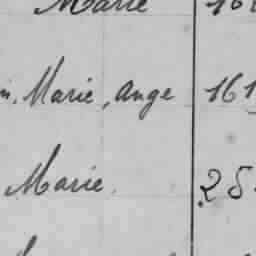 Marie
Marie, Ange 161
Marie. 25